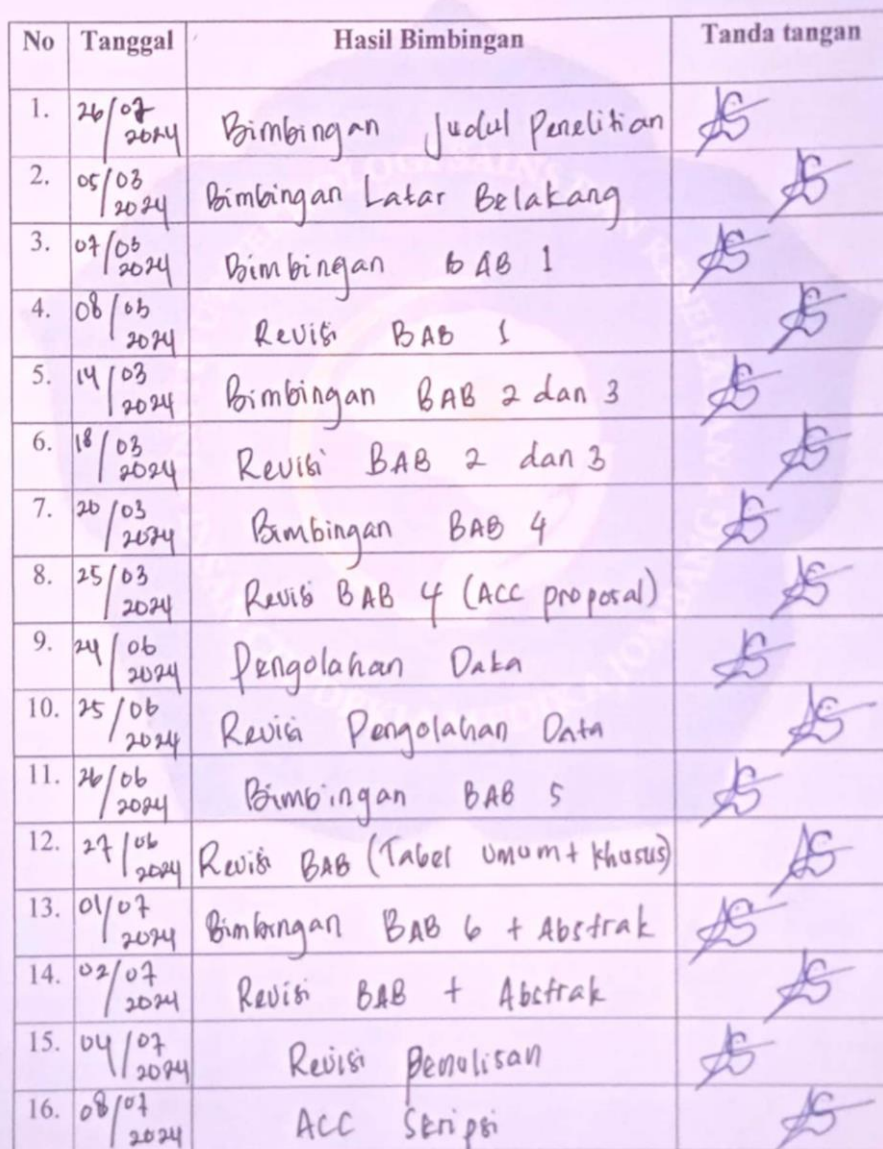 No Tanggal Hasil Bimbingan Tanda tangan
1. 26/07 2024 Bimbingan Judul Penelitian
2. 05/03 2024 Bimbingan Latar Belakang
3. 07/03 2024 Bimbingan BAB 1
4. 08/03 2024 Revisi BAB 1
5. 14/03 2024 Bimbingan BAB 2 dan 3
6. 18/03 2024 Revisi BAB 2 dan 3
7. 20/03 2024 Bimbingan BAB 4
8. 25/03 2024 Revisi BAB 4 (ACC proposal)
9. 24/06 2024 Pengolahan Data
10. 25/06 2024 Revisi Pengolahan Data
11. 26/06 2024 Bimbingan BAB 5
12. 27/06 2024 Revisi BAB (Tabel Umum + Khusus)
13. 01/07 2024 Bimbingan BAB 6 + Abstrak
14. 02/07 2024 Revisi BAB + Abstrak
15. 04/07 2024 Revisi Penulisan
16. 08/07 2024 ACC Skripsi